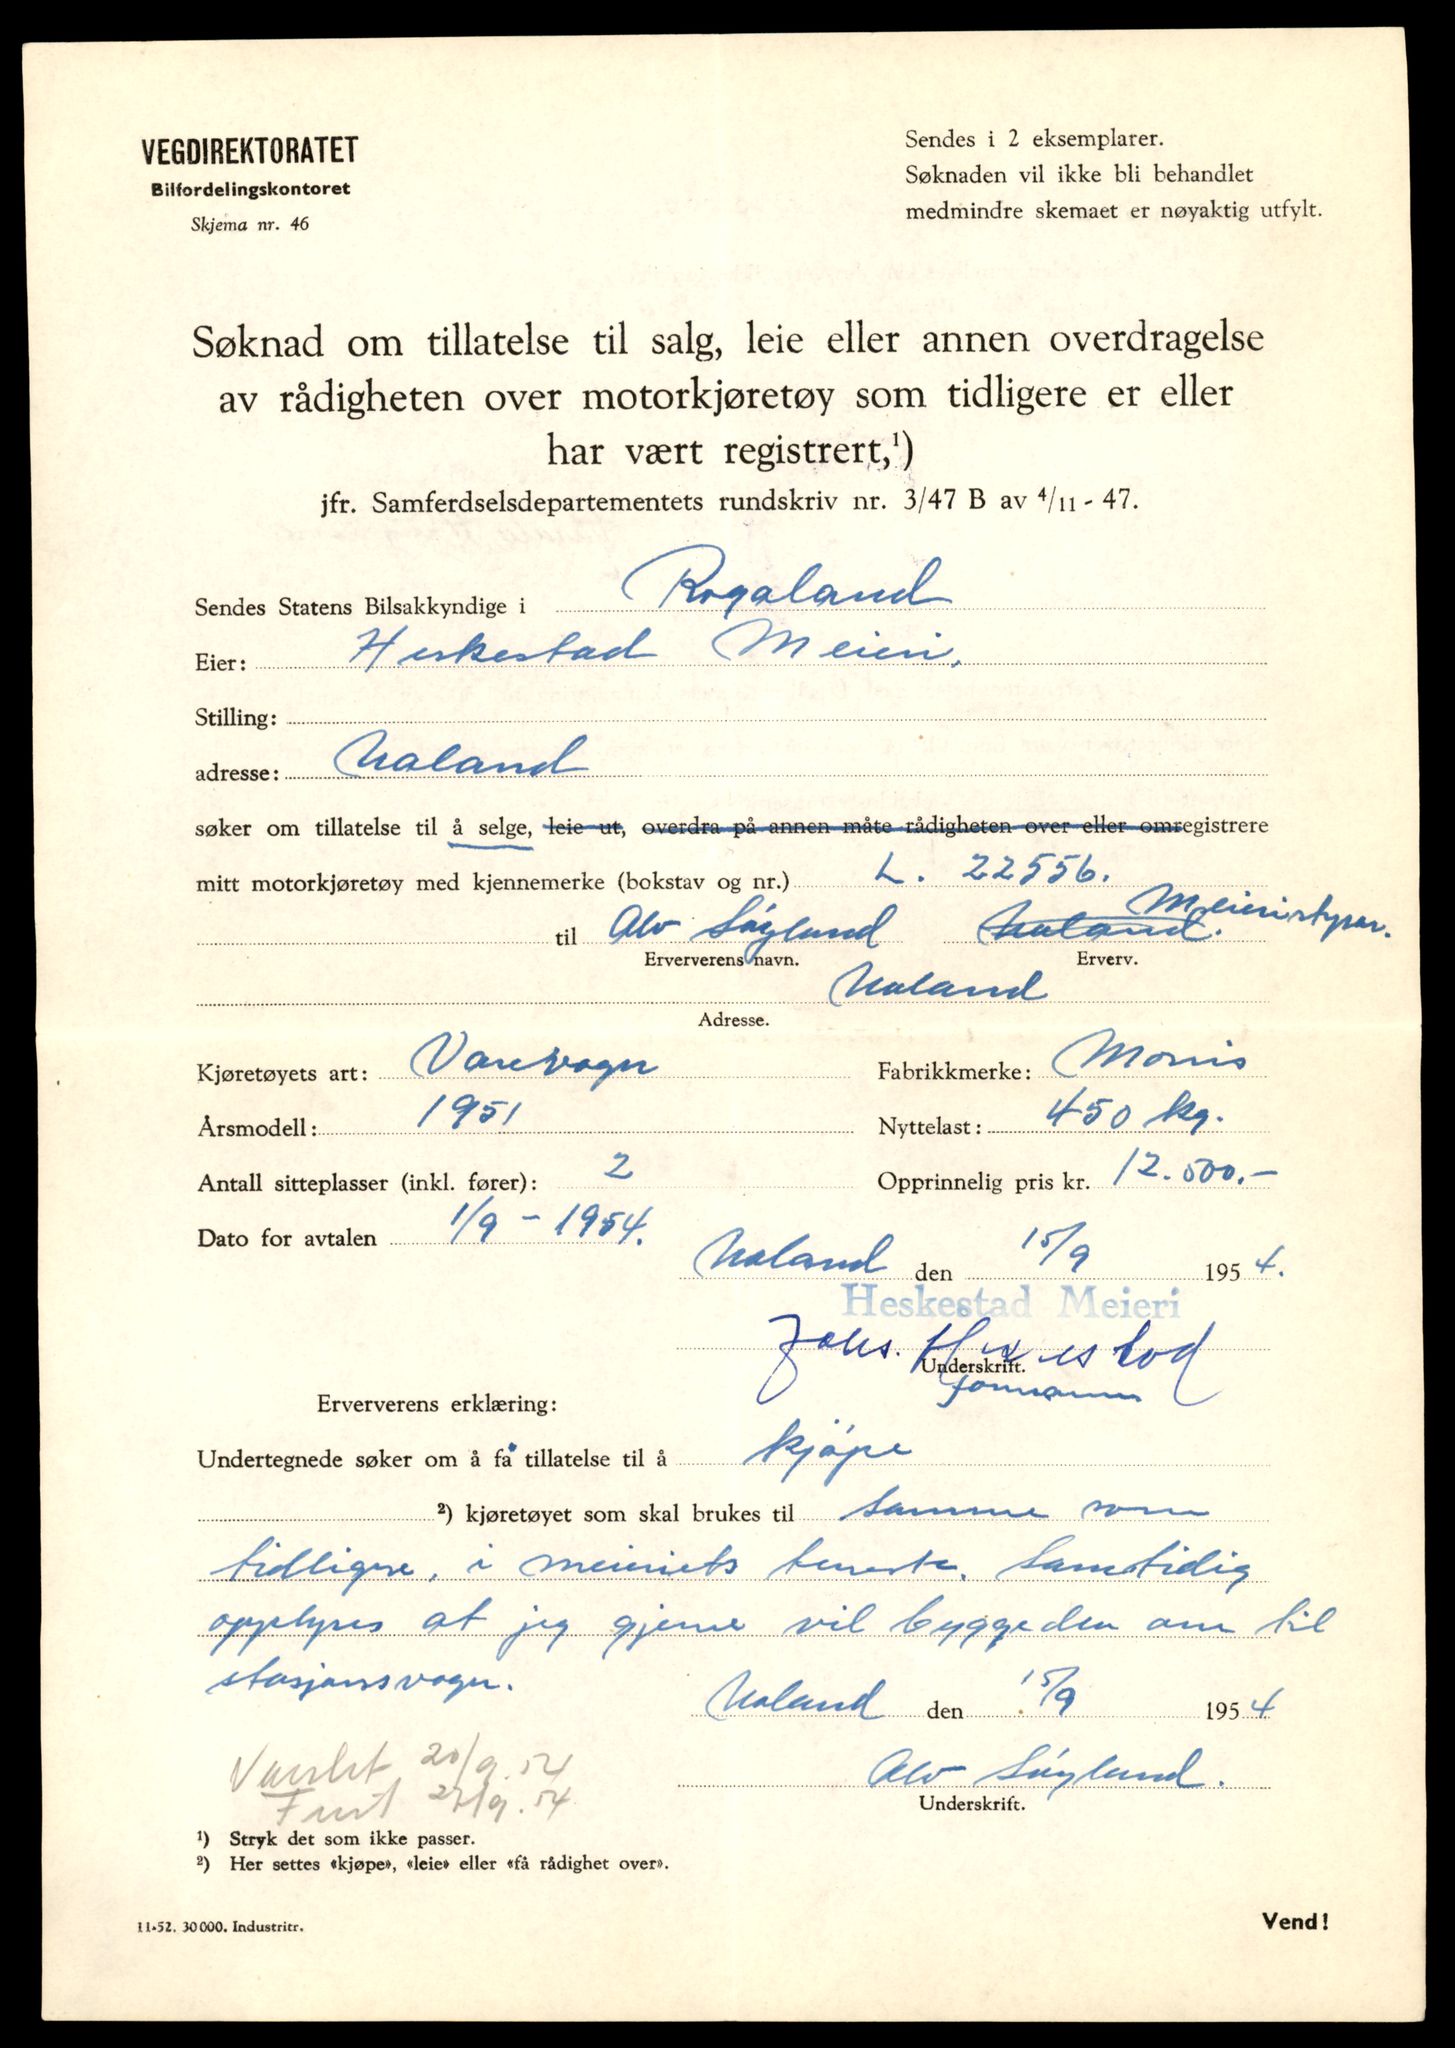 VEGDIREKTORATET
Bilfordelingskontoret
Skjema nr. 46
Sendes i 2 eksemplarer.
Søknaden vil ikke bli behandlet
medmindre skemaet er nøyaktig utfylt.
Søknad om tillatelse til salg, leie eller annen overdragelse
av rådigheten over motorkjøretøy som tidligere er eller
har vært registrert,¹)
jfr. Samferdselsdepartementets rundskriv nr. 3/47 B av 4/11 - 47.
Sendes Statens Bilsakkyndige i Rogaland
Eier: Heskestad Meieri.
Stilling:
adresse: Ualand
søker om tillatelse til å selge, leie ut, overdra på annen måte rådigheten over eller omregistrere
mitt motorkjøretøy med kjennemerke (bokstav og nr.) L. 22556.
til Alv Søyland Ualand. Meieristyrer.
Erververens navn. Erverv.
Ualand
Adresse.
Kjøretøyets art: Varevogn Fabrikkmerke: Morris
Årsmodell: 1951 Nyttelast: 450 kg.
Antall sitteplasser (inkl. fører): 2 Opprinnelig pris kr. 12.500.-
Dato for avtalen 1/9 - 1954.
Ualand den 15/9 1954.
Heskestad Meieri
Johs. Heskestad
Underskrift.
formann
Erververens erklæring:
Undertegnede søker om å få tillatelse til å kjøpe
²) kjøretøyet som skal brukes til samme som
tidligere, i meieriets teneste. Samtidig
opplyses at jeg gjerne vil bygge den om til
stasjonsvogn.
Ualand den 15/9 1954
Alv Søyland.
Underskrift.
20/9.54
22/9.54
¹) Stryk det som ikke passer.
²) Her settes «kjøpe», «leie» eller «få rådighet over».
11-52. 30000. Industritr.
Vend!